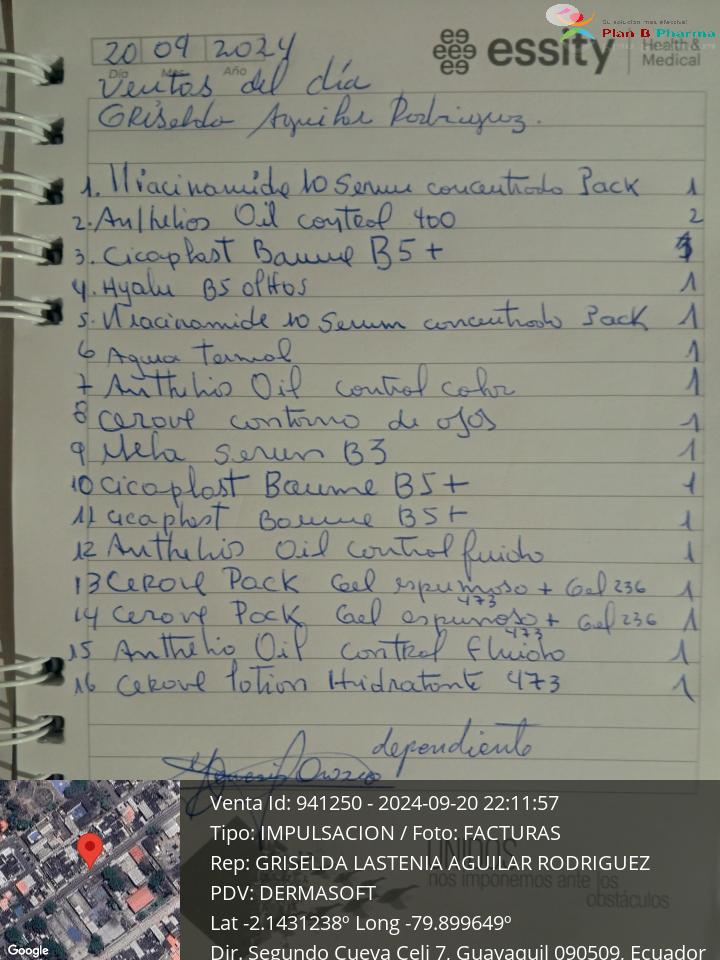 Su solución más efectiva!
Plan B Pharma
essity
Health &
Medical
20 09 2024
Día Mes Año
Ventas del día
Griselda Aguilar Rodriguez.
1. Niacinamide 10 Serum concentrado Pack 1
2. Anthelios Oil control 400 2
3. Cicaplast Baume B5+
4. Hyalu B5 olHos 1
5. Niacinamide 10 Serum concentrado Pack 1
6 Agua Termal 1
7 Anthelio Oil control color 1
8 Cerave contorno de ojos 1
9 Mela Serum B3 1
10 Cicaplast Baume B5+ 1
11 Cicaplast Baume B5+ 1
12 Anthelio Oil control fluido 1
13 Cerave Pack Gel espumoso 473 + Gel 236 1
14 Cerave Pack Gel espumoso 473 + Gel 236 1
15 Anthelio Oil control fluido 1
16 Cerave lotion Hidratante 473 1
dependiente
Orozco
UNIDOS
nos imponemos ante los
obstáculos
Venta Id: 941250 - 2024-09-20 22:11:57
Tipo: IMPULSACION / Foto: FACTURAS
Rep: GRISELDA LASTENIA AGUILAR RODRIGUEZ
PDV: DERMASOFT
Lat -2.1431238º Long -79.899649º
Dir. Segundo Cueva Celi 7, Guayaquil 090509, Ecuador
Google